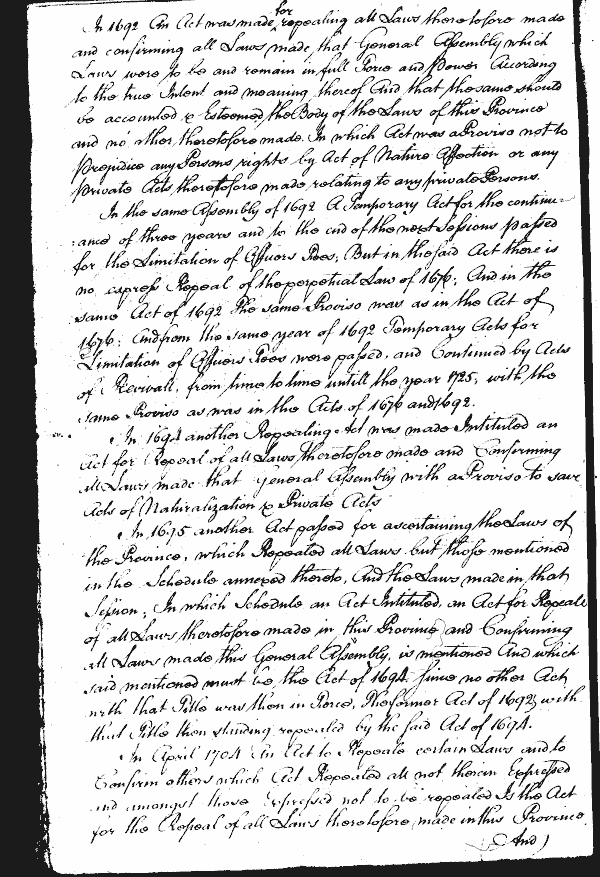 for
In 1692 An Act was made repealing all Laws theretofore made
and confirming all Laws made that General Assembly which
Laws were to be and remain in full Force and Power According
to the true Intent and meaning thereof And that the same should
be accounted & Esteemed, the Body of the Laws of this Province
and no other theretofore made. In which Act was a Proviso not to
Prejudice any Persons rights by Act of Nature Affection or any
Private Acts theretofore made relating to any private Persons.
In the same Assembly of 1692 A Temporary Act for the continu-
ance of three years and to the end of the next Sessions passed
for the Limitation of Officers Fees, But in the said Act there is
no express Repeal of the perpetual Law of 1676; And in the
same Act of 1692 The same Proviso was as in the Act of
1676; And from the same year of 1692 Temporary Acts for
Limitation of Officers Fees were passed, and Continued by Acts
of Revivall, from time to time untill the year 1725, with the
same Proviso as was in the Acts of 1676 and 1692.
In 1694 another Repealing Act was made Intituled an
Act for Repeal of all Laws theretofore made and Confirming
all Laws made that General Assembly with a Proviso to save
Acts of Naturalization & Private Acts
In 1695 another Act passed for ascertaining the Laws of
the Province, which Repealed all Laws but those mentioned
in the Schedule annexed thereto, And the Laws made in that
Session; In which Schedule an Act Intituled, an Act for Repeale
of all Laws theretofore made in this Province, and Confirming
all Laws made this General Assembly, is mentioned And which
said mentioned must be, the Act of 1694. since no other Act
with that Title was then in Force, The former Act of 1692, with
that Title then standing repealed by the said Act of 1694.
In April 1704 An Act to Repeale certain Laws and to
Confirm others which Act Repealed all not therein Expressed
and amongst those Expressed not to be repealed Is the Act
for the Repeal of all Laws theretofore, made in this Province
And)